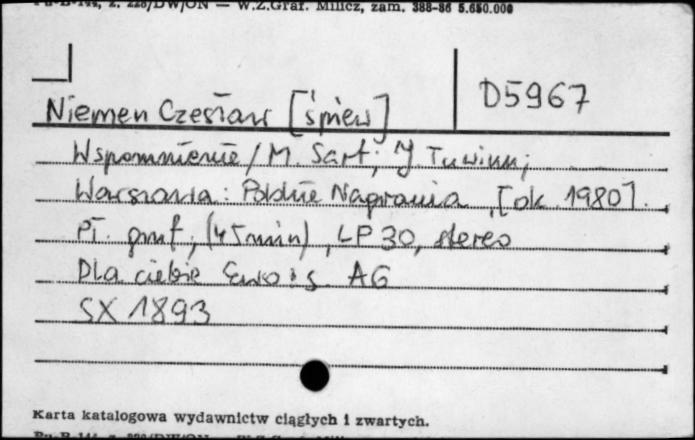 Pu-B-144, z. 228/DW/ON — W.Z.Graf. Milicz, zam. 388-86 5.650.000
D5967
Niemen Czesław [śpiew]
Wspomnienie / M. Sart; J Tuwim;
Warszawa: Polskie Nagrania, [ok. 1980].
Pł. gmf, (45min), LP 30, stereo
Dla ciebie s. AG
SX 1893
Karta katalogowa wydawnictw ciągłych i zwartych.
Pu-B-144, z. 228/DW/ON — W.Z.Graf. Mili